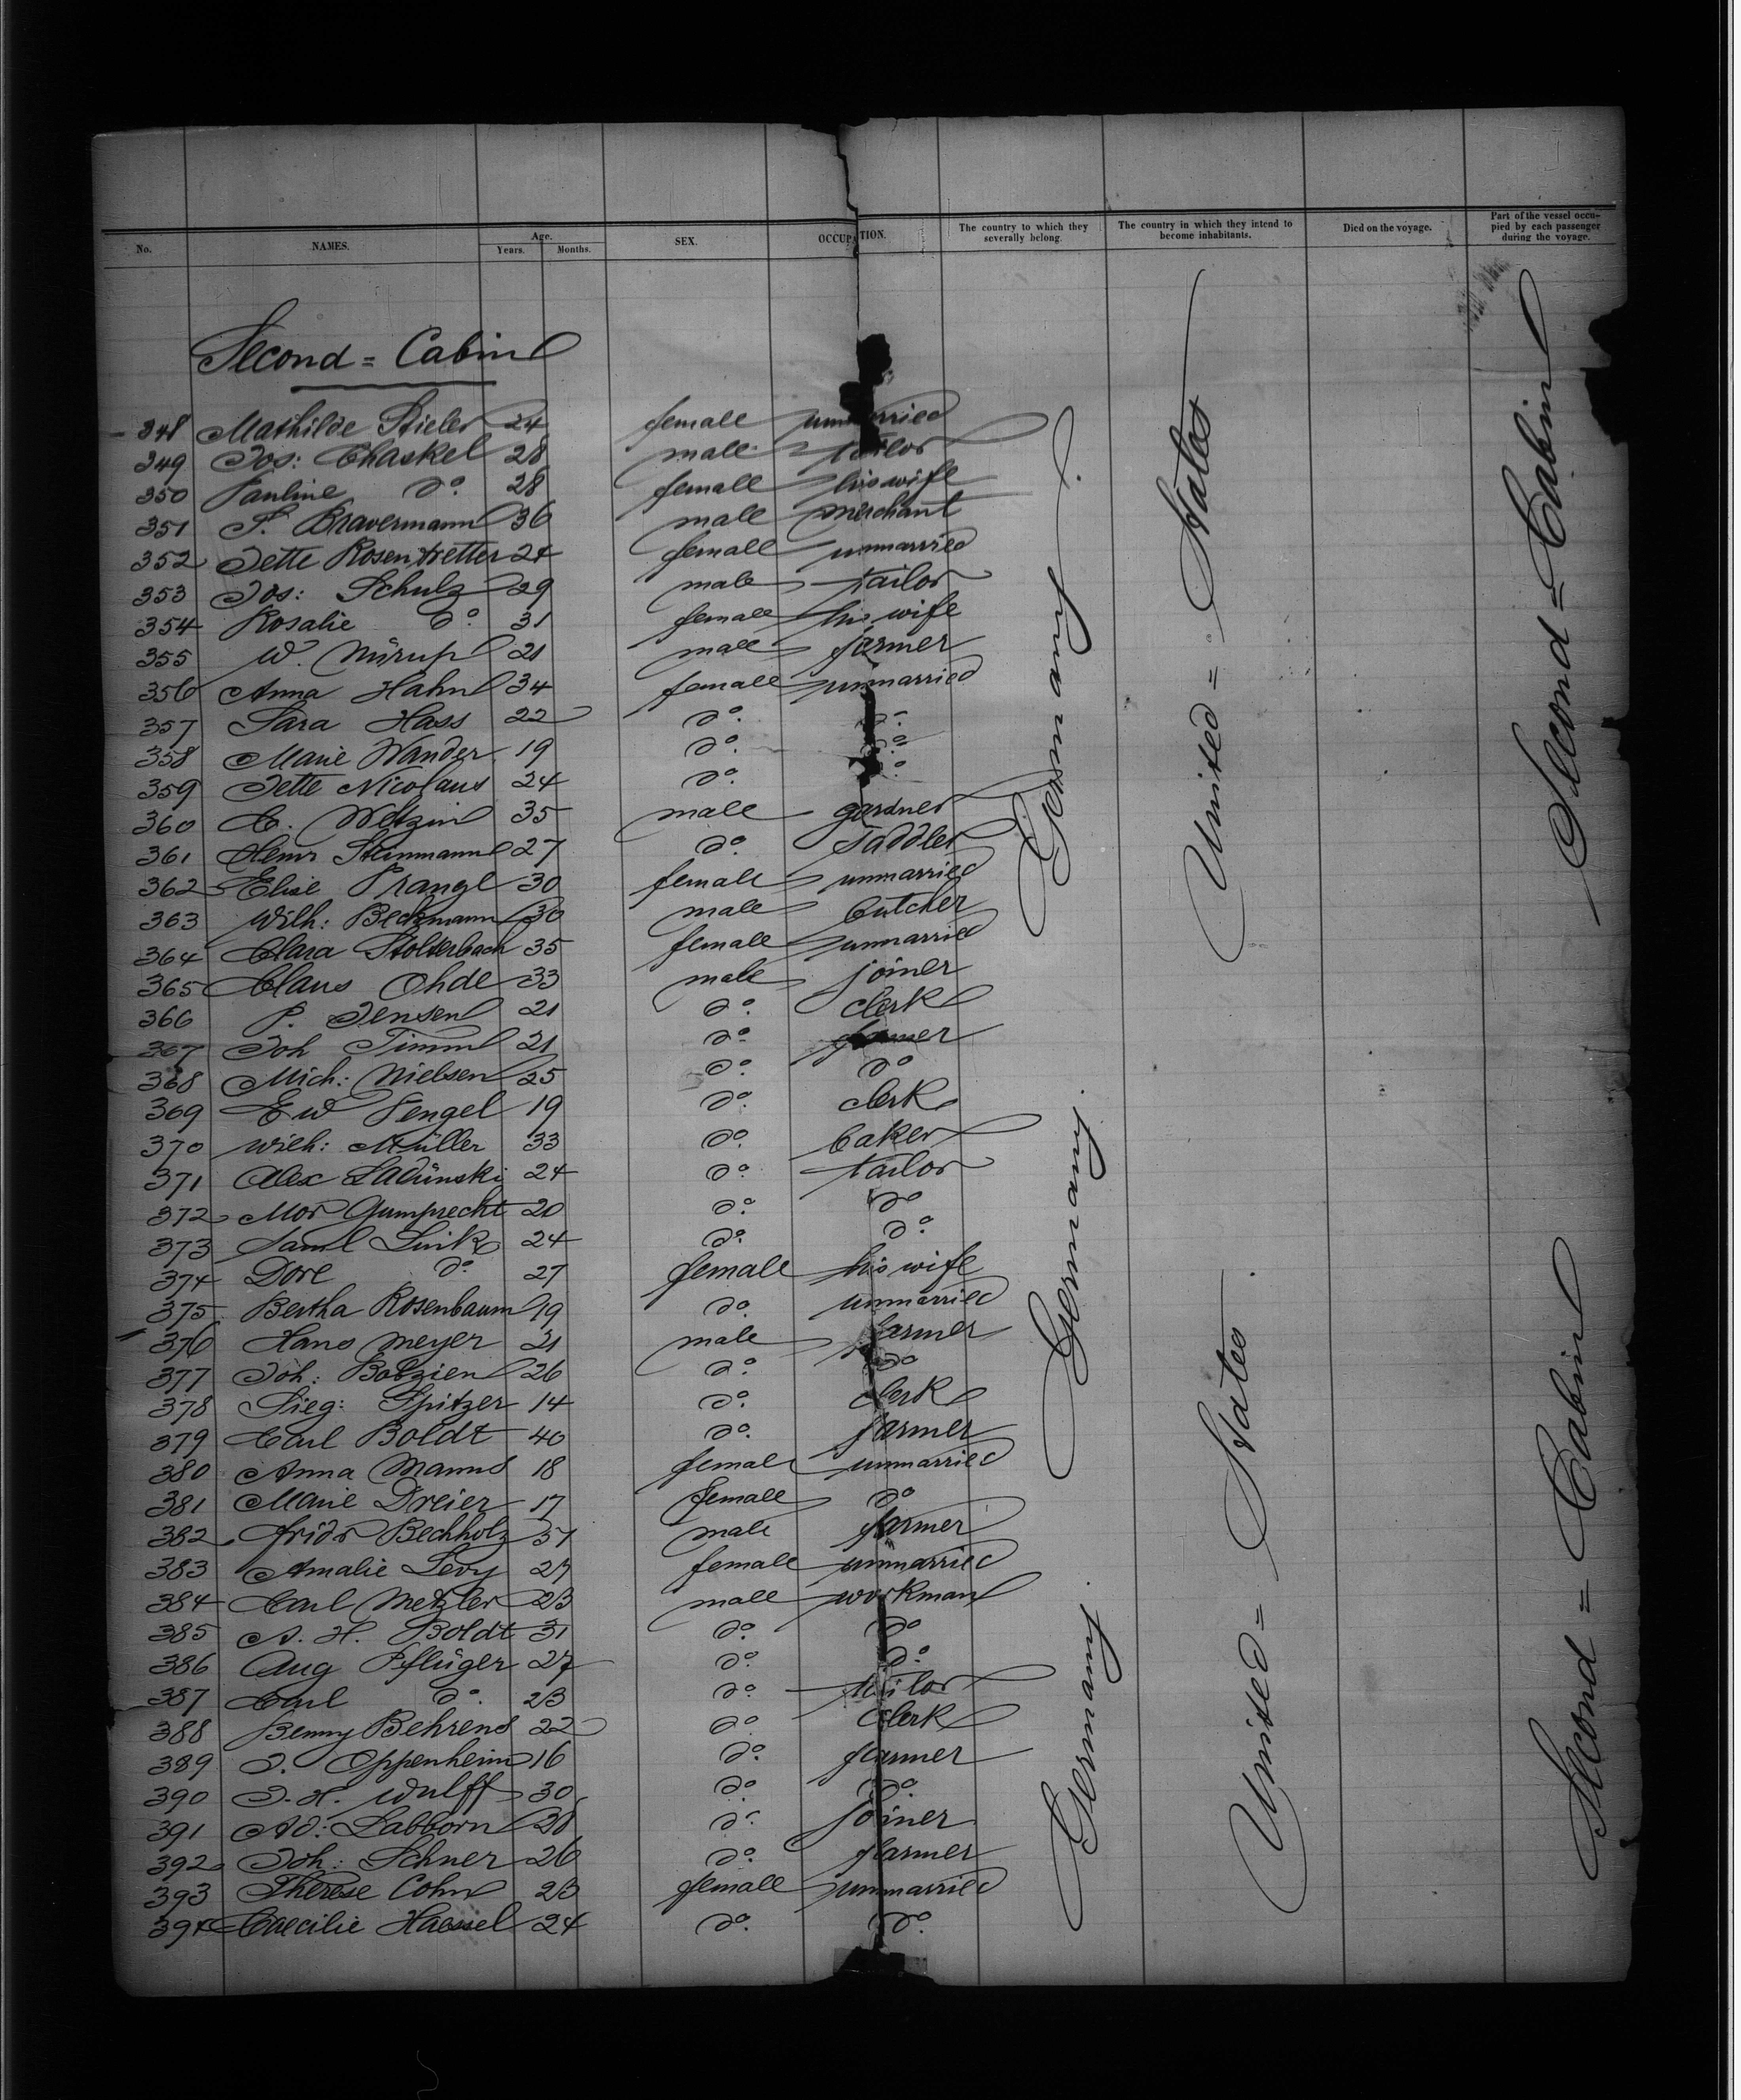 No. NAMES. Age. Years. Months. SEX. OCCUPATION. The country to which they severally belong. The country in which they intend to become inhabitants. Died on the voyage. Part of the vessel occupied by each passenger during the voyage.
Second = Cabin
348 Mathilde Stieler 24 female unmarried
349 Jos: Chaskel 28 male tailor
350 Pauline do. 28 female his wife
351 P. Bravermann 36 male merchant
352 Jette Rosentretter 24 female unmarried
353 Jos: Schulz 29 male tailor
354 Rosalie do. 31 female his wife
355 W. Nürup 21 male farmer
356 Anna Hahn 34 female unmarried
357 Sara Hass 22 do. do.
358 Marie Wander 19 do. do.
359 Jette Nicolaus 24 do. do.
360 C. Weltzin 35 male gardner
361 Henr Steinmann 27 do. saddler
362 Elise Prangl 30 female unmarried
363 Wilh: Beckmann 30 male butcher
364 Clara Stolterbach 35 female unmarried
365 Claus Ohde 33 male joiner
366 P. Jensen 21 do. clerk
367 Joh Timm 21 do. farmer
368 Mich: Nielsen 25 do. do
369 Ew Pengel 19 do. clerk
370 Wilh: Müller 33 do. baker
371 Alex Ladünski 24 do. tailor
372 Mor Gumprecht 20 do. do
373 Saml Link 24 do. do.
374 Dore do. 27 female his wife
375 Bertha Rosenbaum 19 do. unmarried
376 Hans Meyer 21 male farmer
377 Joh: Bobzien 26 do. do
378 Sieg: Spitzer 14 do. clerk
379 Carl Boldt 40 do. farmer
380 Anna Manns 18 female unmarried
381 Marie Dreier 17 female do
382 Fridr Bechholz 51 male farmer
383 Amalie Levy 27 female unmarried
384 Carl Metzler 23 male workman
385 A. H. Boldt 31 do. do
386 Aug Pflüger 27 do. do.
387 Carl do. 23 do. tailor
388 Benny Behrens 22 do. clerk
389 J. Oppenheim 16 do. farmer
390 J. H. Wulff 30 do. do.
391 Ad: Labborn 28 do. joiner
392 Joh: Schner 26 do. farmer
393 Therese Cohn 23 female unmarried
394 Caecilie Haessel 24 do. do.
Germany
Germany.
Germany.
United = States
United = States
Second = Cabin
Second = Cabin